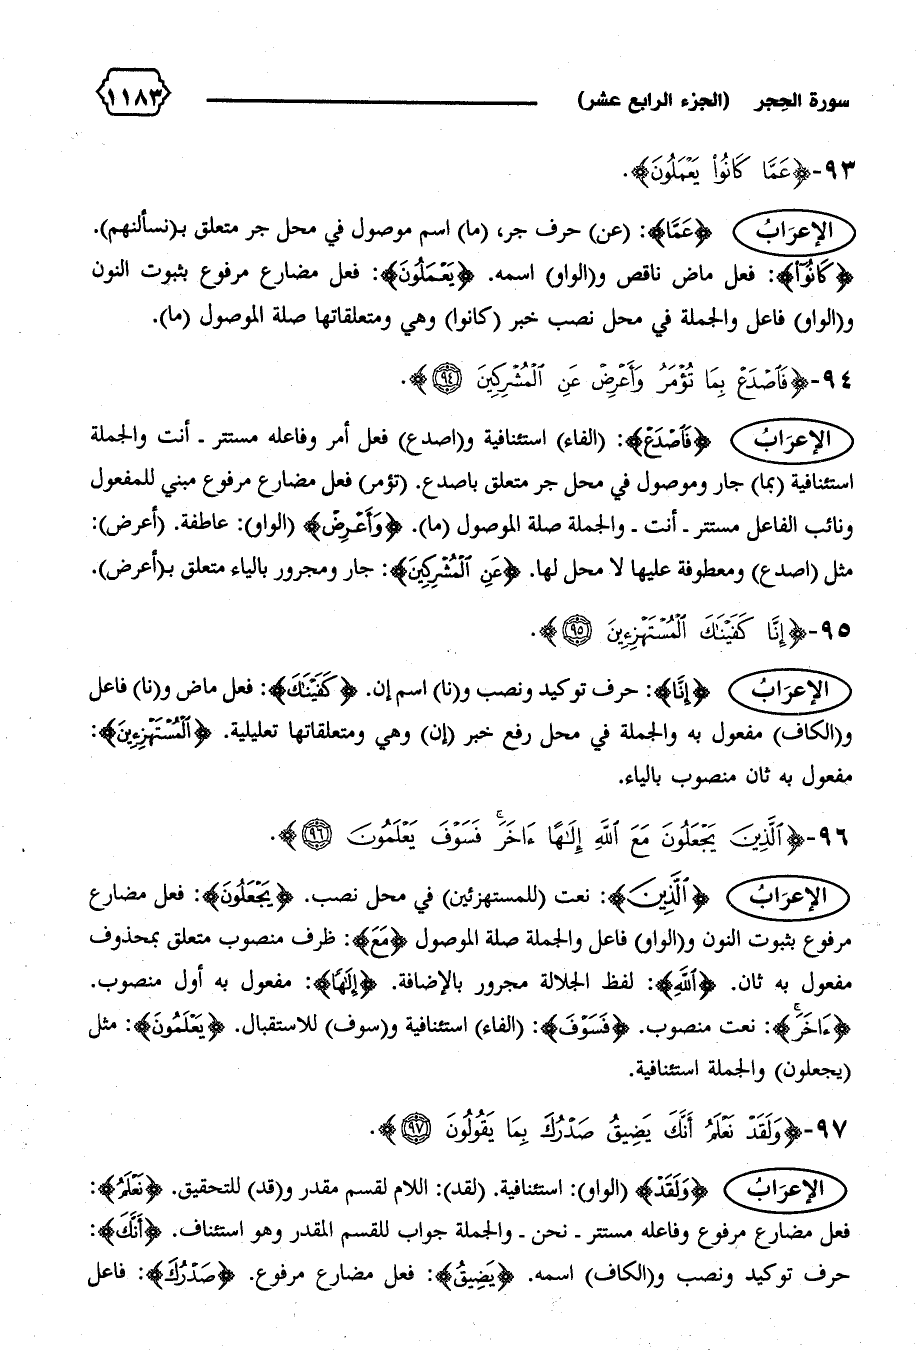 سورة الحجر (الجزء الرابع عشر) ١١٨٣
٩٣-﴿عَمَّا كَانُوا۟ يَعْمَلُونَ﴾.
الإعرَابُ ﴿عَمَّا﴾: (عن) حرف جر، (ما) اسم موصول في محل جر متعلق بـ(نسألنهم).
﴿كَانُوٓا۟﴾: فعل ماض ناقص و(الواو) اسمه. ﴿يَعْمَلُونَ﴾: فعل مضارع مرفوع بثبوت النون
و(الواو) فاعل والجملة في محل نصب خبر (كانوا) وهي ومتعلقاتها صلة الموصول (ما).
٩٤-﴿فَٱصْدَعْ بِمَا تُؤْمَرُ وَأَعْرِضْ عَنِ ٱلْمُشْرِكِينَ ٩٤﴾.
الإعرَابُ ﴿فَٱصْدَعْ﴾: (الفاء) استئنافية و(اصدع) فعل أمر وفاعله مستتر ـ أنت والجملة
استئنافية (بما) جار وموصول في محل جر متعلق باصدع. (تؤمر) فعل مضارع مرفوع مبني للمفعول
ونائب الفاعل مستتر ـ أنت ـ والجملة صلة الموصول (ما). ﴿وَأَعْرِضْ﴾ (الواو): عاطفة. (أعرض):
مثل (اصدع) ومعطوفة عليها لا محل لها. ﴿عَنِ ٱلْمُشْرِكِينَ﴾: جار ومجرور بالياء متعلق بـ(أعرض).
٩٥-﴿إِنَّا كَفَيْنَٰكَ ٱلْمُسْتَهْزِءِينَ ٩٥﴾.
الإعرَابُ ﴿إِنَّا﴾: حرف توكيد ونصب و(نا) اسم إن. ﴿كَفَيْنَٰكَ﴾: فعل ماض و(نا) فاعل
و(الكاف) مفعول به والجملة في محل رفع خبر (إن) وهي ومتعلقاتها تعليلية. ﴿ٱلْمُسْتَهْزِءِينَ﴾:
مفعول به ثان منصوب بالياء.
٩٦-﴿ٱلَّذِينَ يَجْعَلُونَ مَعَ ٱللَّهِ إِلَٰهًا ءَاخَرَ ۚ فَسَوْفَ يَعْلَمُونَ ٩٦﴾.
الإعرَابُ ﴿ٱلَّذِينَ﴾: نعت (للمستهزئين) في محل نصب. ﴿يَجْعَلُونَ﴾: فعل مضارع
مرفوع بثبوت النون و(الواو) فاعل والجملة صلة الموصول ﴿مَعَ﴾: ظرف منصوب متعلق بمحذوف
مفعول به ثان. ﴿ٱللَّهِ﴾: لفظ الجلالة مجرور بالإضافة. ﴿إِلَٰهًا﴾: مفعول به أول منصوب.
﴿ءَاخَرَ ۚ﴾: نعت منصوب. ﴿فَسَوْفَ﴾: (الفاء) استئنافية و(سوف) للاستقبال. ﴿يَعْلَمُونَ﴾: مثل
(يجعلون) والجملة استئنافية.
٩٧-﴿وَلَقَدْ نَعْلَمُ أَنَّكَ يَضِيقُ صَدْرُكَ بِمَا يَقُولُونَ ٩٧﴾.
الإعرَابُ ﴿وَلَقَدْ﴾ (الواو): استئنافية. (لقد): اللام لقسم مقدر و(قد) للتحقيق. ﴿نَعْلَمُ﴾:
فعل مضارع مرفوع وفاعله مستتر ـ نحن ـ والجملة جواب للقسم المقدر وهو استئناف. ﴿أَنَّكَ﴾:
حرف توكيد ونصب و(الكاف) اسمه. ﴿يَضِيقُ﴾: فعل مضارع مرفوع. ﴿صَدْرُكَ﴾: فاعل